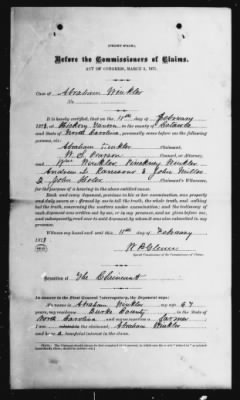 [SHORT FORM.]
Before the Commissioners of Claims.
ACT OF CONGRESS, MARCH 3, 1871.
Case of Abraham Winkler
No.
It is hereby certified, that on the 11th day of February
187 , at Hickory Tavern in the county of Catawba
and State of North Carolina, personally came before me the following persons, viz:
Abraham Winkler Claimant,
W. S. Pearson Counsel, or Attorney,
and Wm Winkler, Pinckney Winkler
Andrew L. John Miller
& John Witnesses,
for the purpose of a hearing in the above entitled cause.
Each and every deponent, previous to his or her examination, was properly
and duly sworn or affirmed by me to tell the truth, the whole truth, and nothing
but the truth, concerning the matters under examination; and the testimony of
each deponent was written out by me, or in my presence, and as given before me,
and subsequently read over to said deponent, by whom it was also subscribed in my
presence.
Witness my hand and seal this 11th day of February
187
W. P. Glenn
Special Commissioner of the Commissioners of Claims.
Deposition of The Claimant
In answer to the First General Interrogatory, the Deponent says:
My name is Abraham Winkler, my age 67
years, my residence Burke County, in the State of
North Carolina, and my occupation a farmer
I am the claimant, Abraham Winkler
and have a beneficial interest in the claim.